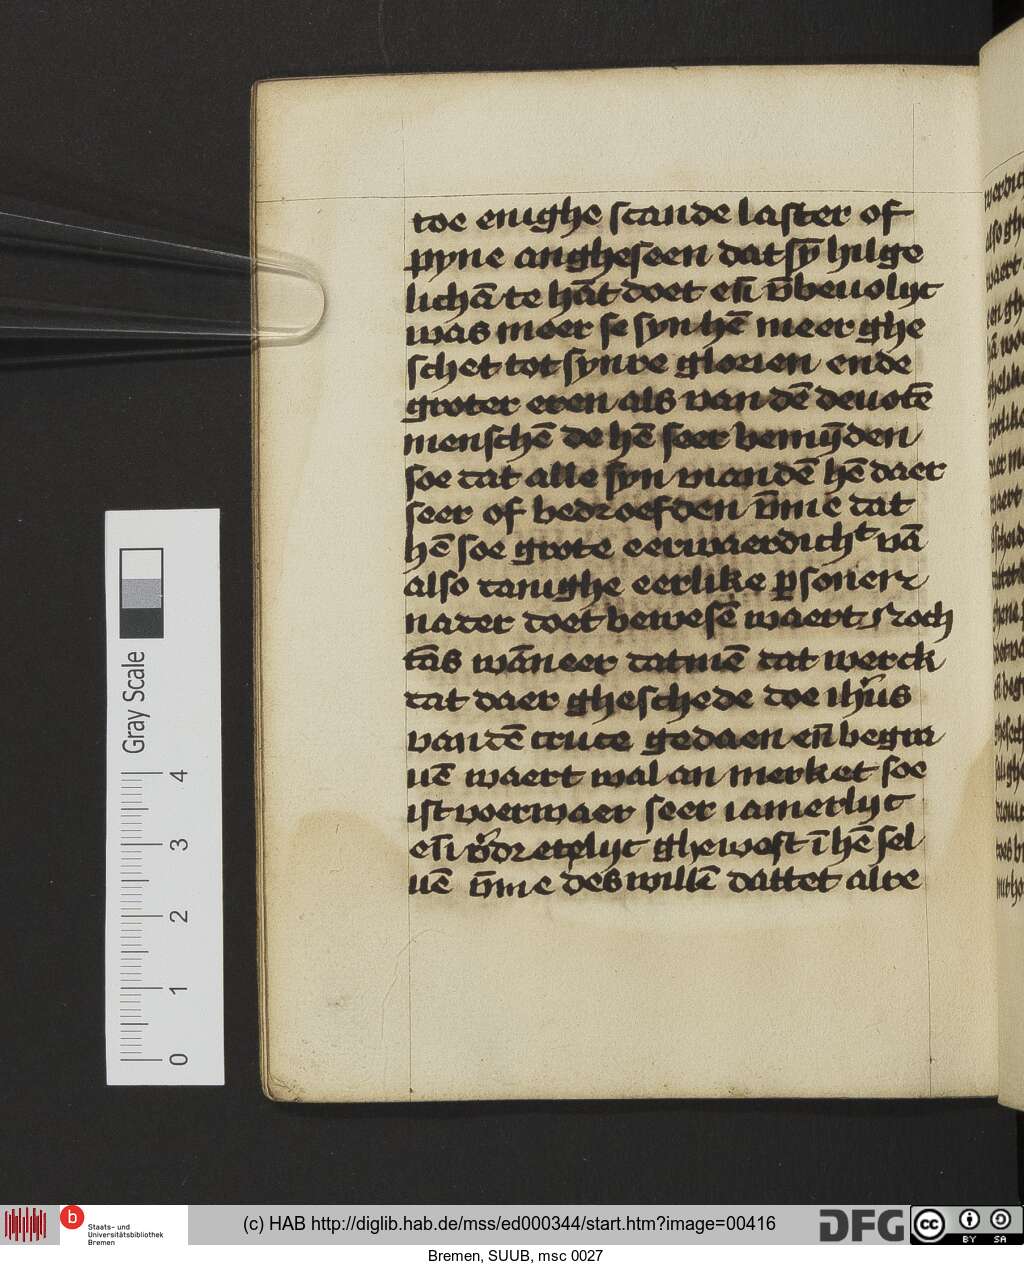 toe enighe scande laster of
pyne angheseen dat sȳ hilge
lichā te hāt doet en̄ v̄bevolyt
was meer se syn hē meer ghe
schet tot synre glorien ende
groter eren als van dē devotē
menschē de hē seer bemȳden
soe dat alle syn viandē hē daer
seer of bedroefden v̄me dat
hē soe grote eerwaerdicht vā
also danighe eerlike psonen
nader doet bewesē waert Noch
tās wāneer datmē dat werck
dat daer gheschede doe ihūs
van dē cruce gedaen en̄ begra
vē waert wal an merket soe
ist voerwaer seer iamerlyc
en̄ v̄dretelyc ghewest ī hē sel
vē v̄me des willē dattet alre
Gray Scale
4
3
2
1
0
b
Staats- und
Universitätsbibliothek
Bremen
(c) HAB http://diglib.hab.de/mss/ed000344/start.htm?image=00416
DFG
cc
BY SA
Bremen, SUUB, msc 0027